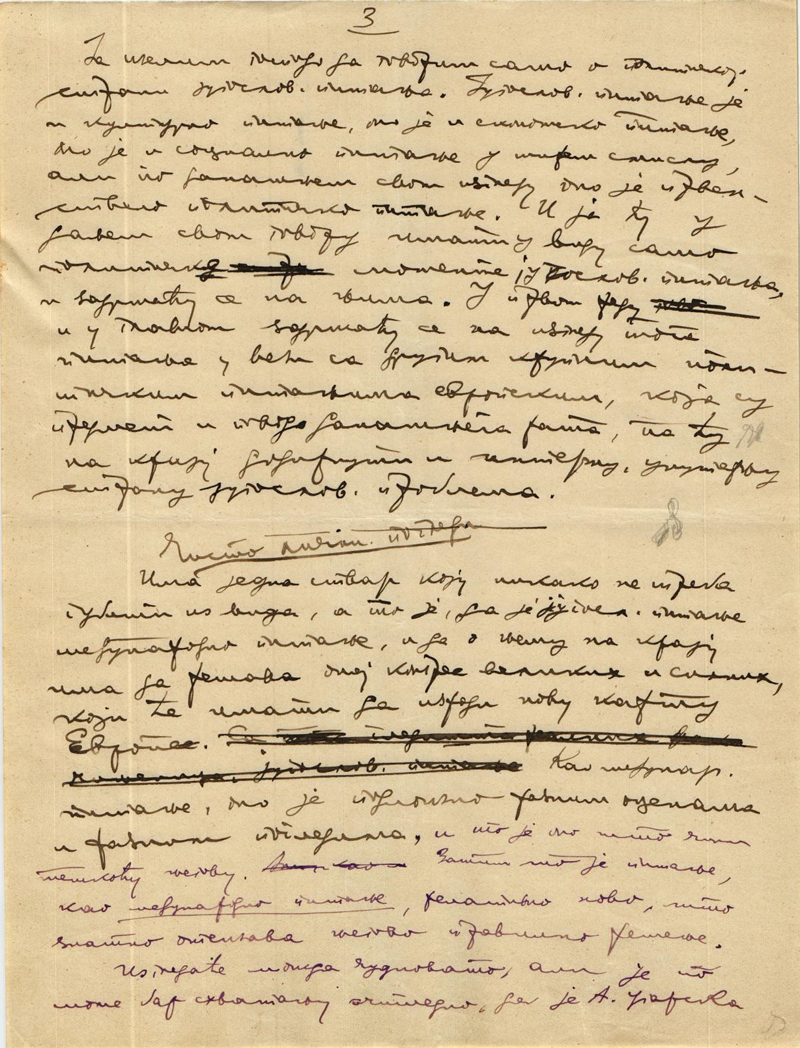 3
Ја желим данас да говорим само о политичкој
страни југослов. питања. Југослов. питање је
и културно питање, оно је и економско питање,
оно је и социално питање у ширем смислу,
али по данашњем свом изгледу оно је првен-
ствено политичко питање. И ја ћу у
данашњем свом говору имати у виду само
политичке моменте југослов. питања,
и задржаћу се на њима. У првом реду
и у главном задржаћу се на изгледу тога
питања у вези са другим крупним поли-
тичким питањима европским, која су
предмет и повод данашњега рата, па ћу
на крају додирнути и интерну, унутарњу
страну југослов. проблема.
Има једна ствар коју никако не треба
губити из вида, а то је, да је југосл. питање
међународно питање, и да о њему на крају
има да решава онај конгрес великих и силних,
који ће имати да изради нову карту
Европе. Као међунар.
питање, оно је подложно разним оценама
и разним погледима, и то је оно што чини
тешкоћу његову. Затим то је питање,
као међународно питање, релативно ново, што
знатно отежава његово правилно решење.
Изгледаће можда чудновато, али је по
моме схватању, јер је А. Угарска